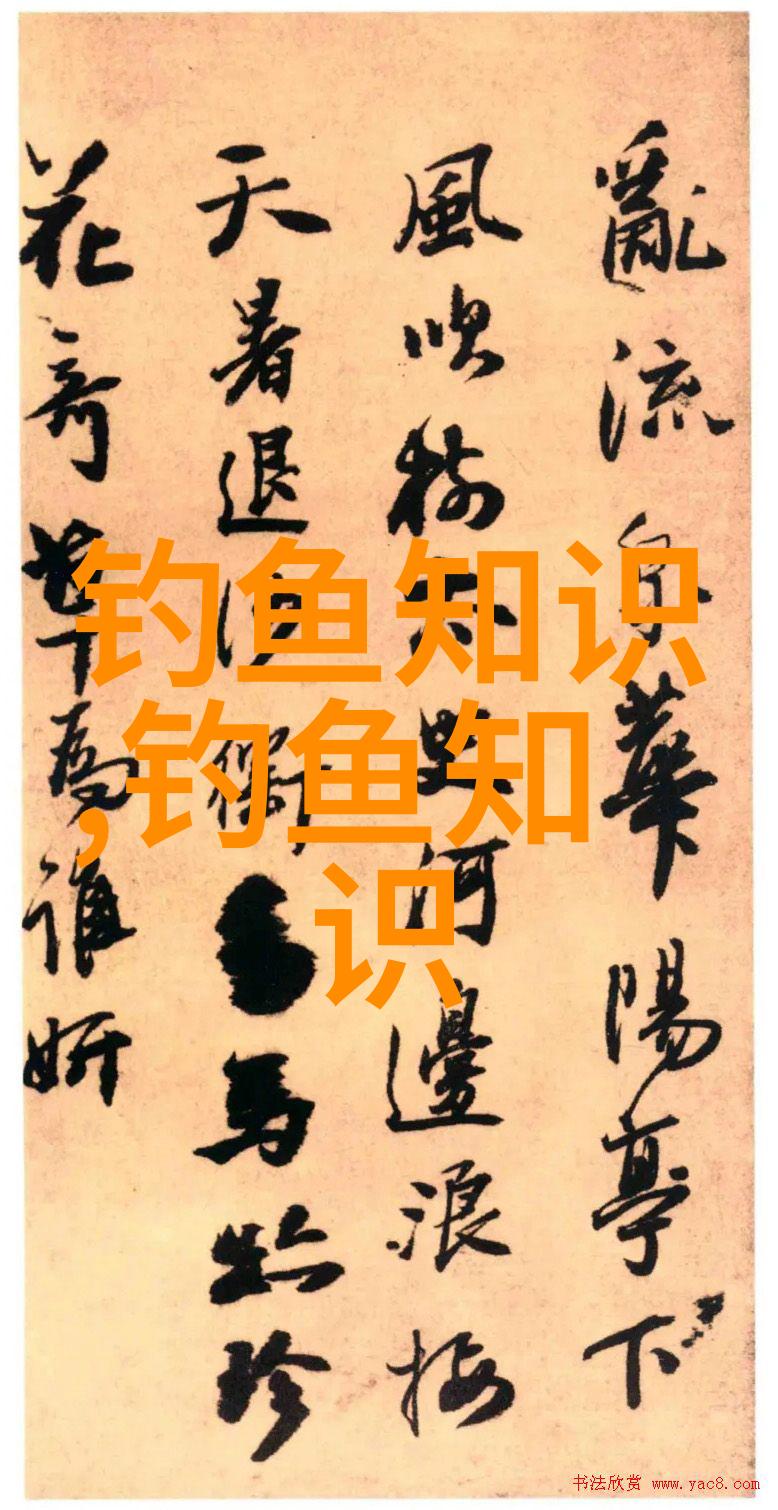 亂流華陽亭下
風吹河邊浪接
天暑退馬珍
花奇草為誰妍
钓鱼知识
,钓鱼知
识
书法欣赏 www.yac8.com